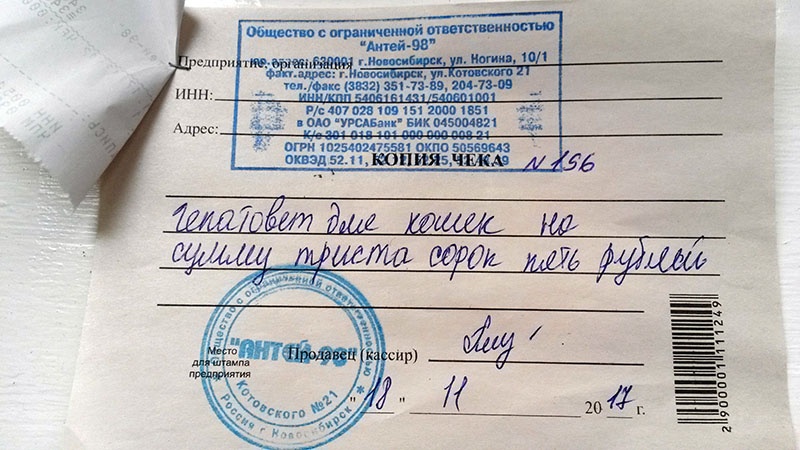 Общество с ограниченной ответственностью
"Антей-98"
Предприятие, организация
юр. адрес: 630001 г.Новосибирск, ул. Ногина, 10/1
факт.адрес: г.Новосибирск, ул.Котовского 21
тел./факс (3832) 351-73-89, 204-73-09
ИНН:
ИНН/КПП 5406161431/540601001
Р/с 407 028 109 151 2000 1851
в ОАО "УРСАБанк" БИК 045004821
Адрес:
К/с 301 018 101 000 000 008 21
ОГРН 1025402475581 ОКПО 50569643
ОКВЭД 52.11,
КОПИЯ ЧЕКА N 156
гепатовет для кошек на
сумму триста сорок пять рублей
Место
для штампа
предприятия
Общество с ограниченной ответственностью
"АНТЕЙ-98"
Котовского №21
Россия г Новосибирск
Продавец (кассир)
"18" 11 2017 г.
2 900001 111249